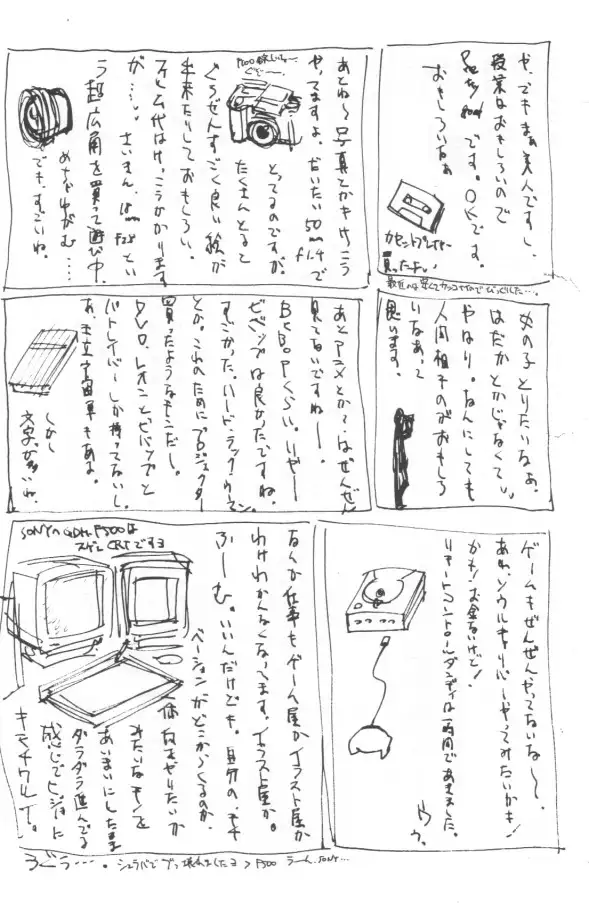 や、でもまぁ美人ですし、
授業はおもしろいので
です。OKです。
おもしろいなぁ
カセットプレイヤー
買ったよぃ
最近のは早くてカッコイイのでびっくりした…。
あとね〜写真とかもけっこう
やってますよ。だいたい50mm f1.4で
とってるのですが、
たくさんとると
ぐうぜんすごく良い絵が
出来たりしておもしろい。
フィルム代はけっこうかかります
が……。さいきん、15mm F2.8とい
う超広角を買って遊び中。
めちゃゆがむ……
でも、すごいね。
女の子とりたいなぁ。
はだかとかじゃなくてぃぃ
やはり。なんにしても
人間相そのものがおもしろ
いなあって
思います。
あとアニメとかではぜんぜん
見てないですね〜。
BEBOPくらい。いやー
ビバップは良かったですね。
すごかった。ハード・ラック・ウーマン
とか。これのためにプロジェクター
買ったようなモンだし。
DVD、レオンとビバップと
パトレイバーしか持ってないし。
あ、王立宇宙軍もあるよ。
しかし
文字が多いね。
ゲームもぜんぜんやってないな〜。
あれ、ソウルキャリバーやってみたいかも!
かも!お金ないけど!
リモートコントロールダンディは一週間であきました。
ウゥ。
なんか仕事もゲーム屋かイラスト屋か
わけわかんなくなってます。イラスト屋か。
ふーむ。いいんだけども。自分の、モチ
ベーションがどこからくるのか、
何をやりたいか
みたいなモノを
あいまいにしたまま
ダラダラ進んでる
感じでヒジョーに
キモチワルイって。
SONYの GDM F500は
スゲェCRTですヨ
うぐぅ…。